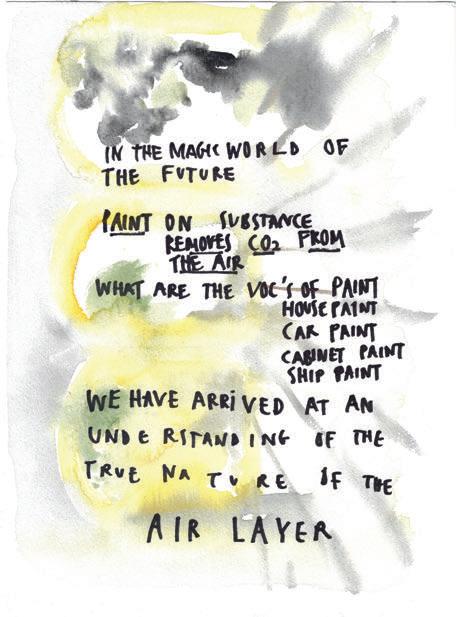 IN THE MAGIC WORLD OF
THE FUTURE
PAINT ON SUBSTANCE
REMOVES CO2 FROM
THE AIR
WHAT ARE THE VOC'S OF PAINT
HOUSE PAINT
CAR PAINT
CABINET PAINT
SHIP PAINT
WE HAVE ARRIVED AT AN
UNDERSTANDING OF THE
TRUE NATURE OF THE
AIR LAYER